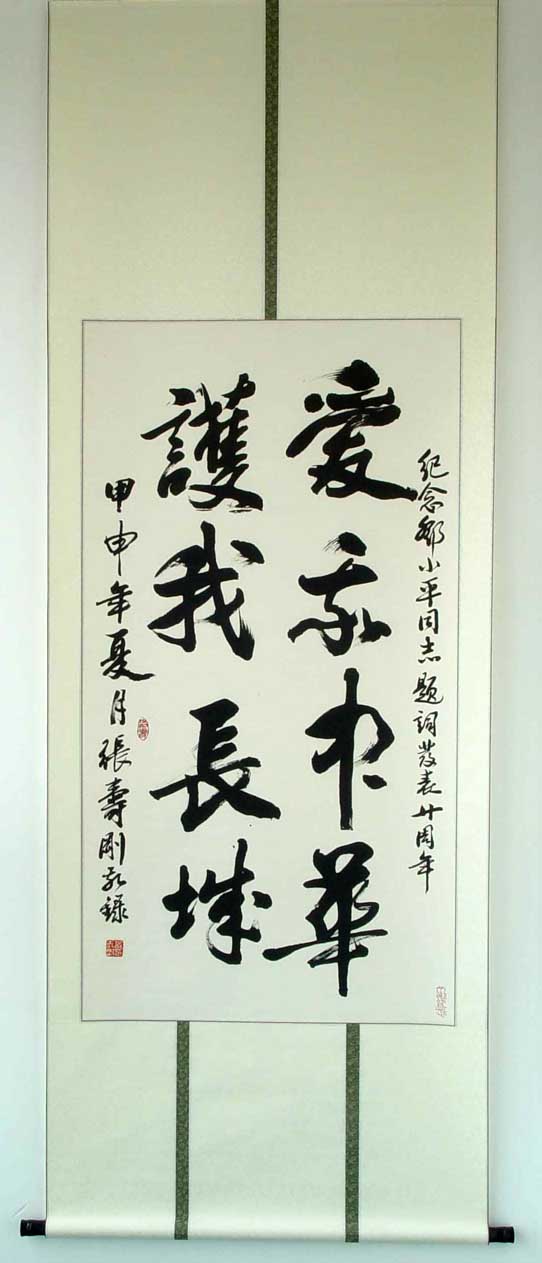 紀念鄧小平同志題詞發表廿周年
愛我中華
護我長城
甲申年夏月張壽剛敬錄